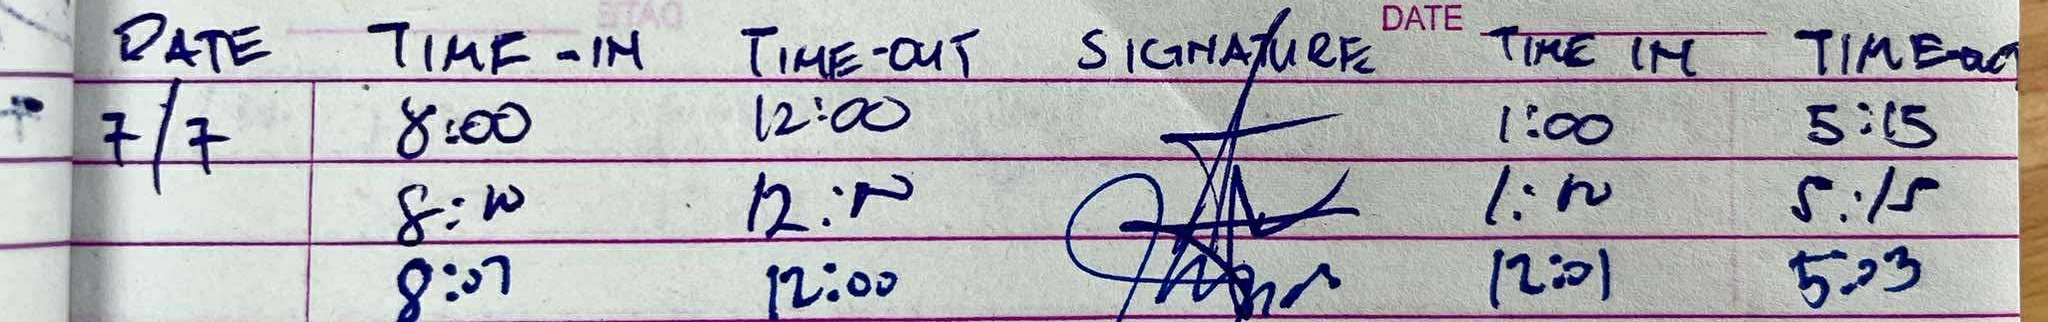 DATE
DATE TIME-IN TIME-OUT SIGNATURE TIME IN TIME-out
7/7 8:00 12:00 1:00 5:15
8:10 12:10 1:10 5:15
8:07 12:00 12:01 5:03